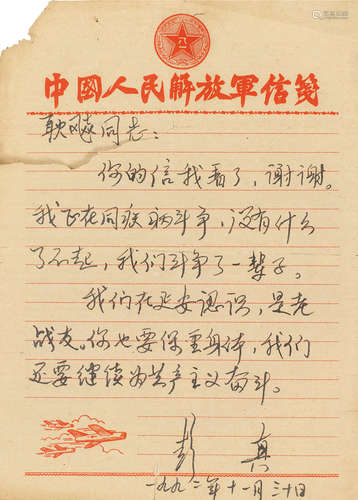 中國人民解放軍信箋
耿飚同志：
你的信我看了，谢谢。
我正在同疾病斗争，没有什么
了不起，我们斗争了一辈子。
我们在延安认识，是老
战友。你也要保重身体，我们
还要继续为共产主义奋斗。
彭真
一九九二年十一月三十日